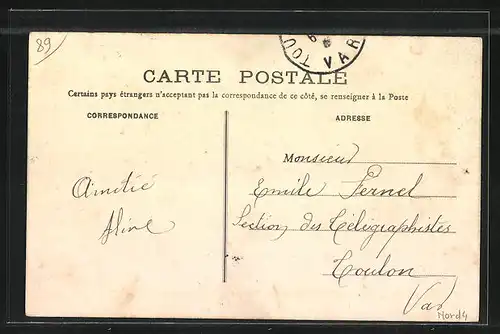 89
TOU
VAR
CARTE POSTALE
Certains pays étrangers n'acceptant pas la correspondance de ce côté, se renseigner à la Poste
CORRESPONDANCE
ADRESSE
Monsieur
Emile Pernel
Section des Télégraphistes
Toulon
Var
Amitié
Aline